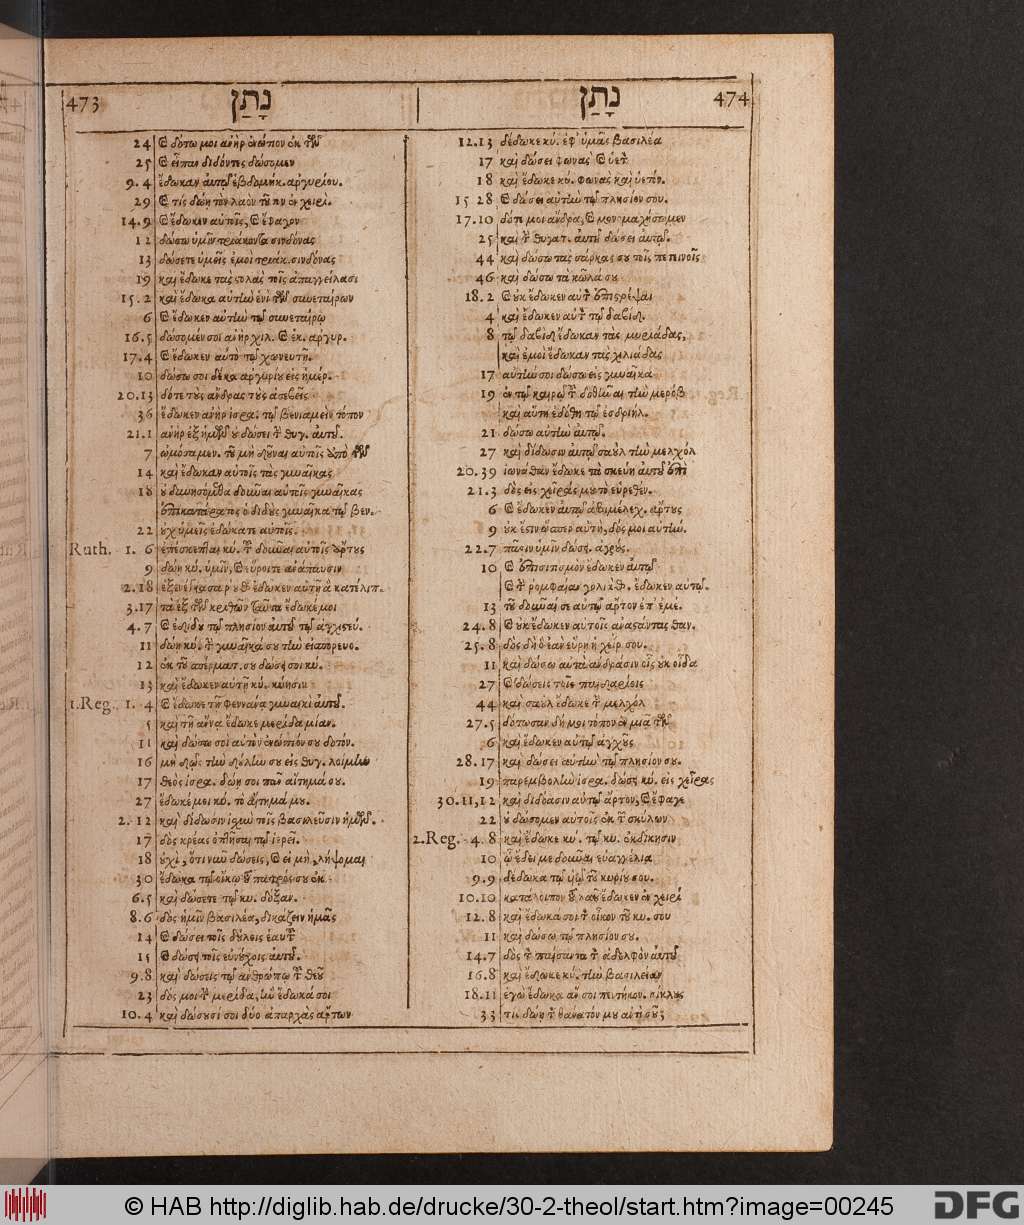 473 נָתַן
נָתַן 474
24 ϗ δότω μοι ἀνὴρ ἐνώτιον ἐκ τῶν
25 ϗ εἶπαν διδόντες δώσομεν
9.4 ἔδωκαν αὐτῷ ἑβδομήκ. ἀργυρίου.
29 ϗ τίς δῴη τὸν λαὸν τοῦτον ἐν χειρί.
14.9 ϗ ἔδωκεν αὐτοῖς, ϗ ἔφαγον
12 δώσω ὑμῖν τριάκοντα σινδόνας
13 δώσετε ὑμεῖς ἐμοὶ τριάκ. σινδόνας
19 καὶ ἔδωκε τὰς στολὰς τοῖς ἀπαγγείλασι
15.2 καὶ ἔδωκα αὐτὴν ἑνὶ τῶν συνεταίρων
6 ϗ ἔδωκεν αὐτὴν τῷ συνεταίρῳ
16.5 δώσομέν σοι ἀνὴρ χιλ. ϗ ἑκ. ἀργυρ.
17.4 ϗ ἔδωκεν αὐτὸ τῷ χωνευτῇ.
10 δώσω σοι δέκα ἀργυρίου εἰς ἡμέρ.
20.13 δότε τοὺς ἄνδρας τοὺς ἀσεβεῖς
36 ἔδωκεν ἀνὴρ ἰσρα. τῷ βενιαμεὶν τόπον
21.1 ἀνὴρ ἐξ ἡμῶν οὐ δώσει τὴν θυγ. αὐτοῦ.
7 ὠμόσαμεν. τοῦ μὴ δοῦναι αὐτοῖς ἀπὸ τῶν
14 καὶ ἔδωκαν αὐτοῖς τὰς γυναῖκας
18 οὐ δυνησόμεθα δοῦναι αὐτοῖς γυναῖκας
ἐπικατάρατος ὁ διδοὺς γυναῖκα τῷ βεν.
22 οὐχ ὑμεῖς ἐδώκατε αὐτοῖς.
Ruth. 1. 6 ἐπέσκεπται κύ. τοῦ δοῦναι αὐτοῖς ἄρτους
9 δῴη κύ. ὑμῖν, ϗ εὕροιτε ἀνάπαυσιν
2.18 ἐξενέγκασα ῥουθ ἔδωκεν αὐτῇ ἃ κατέλιπ.
3.17 τὰ ἓξ τῶν κριθῶν ταῦτα ἔδωκέ μοι
4.7 ϗ ἐδίδου τῷ πλησίον αὐτοῦ τῷ ἀγχιστεύ.
11 δῴη κύ. τὴν γυναῖκά σου τὴν εἰσπορευο.
12 ἐκ τοῦ σπέρματ. σου δώσει σοι κύ.
13 καὶ ἔδωκεν αὐτῇ κύ. κύησιν
1.Reg. 1. 4 ϗ ἔδωκε τῇ φεννάνᾳ γυναικὶ αὐτοῦ.
5 καὶ τῇ ἄννᾳ ἔδωκε μερίδα μίαν.
11 καὶ δώσω σοι αὐτὸν ἐνώπιόν σου δοτόν.
16 μὴ δῷς τὴν δούλην σου εἰς θυγ. λοιμὴν
17 θεὸς ἰσρα. δῴη σοι πᾶν αἴτημά σου.
27 ἔδωκέ μοι κύ. τὸ αἴτημά μου.
2. 12 καὶ δίδωσιν ἰσχὺν τοῖς βασιλεῦσιν ἡμῶν.
17 δὸς κρέας ὀπτῆσαι τῷ ἱερεῖ.
18 οὐχὶ, ὅτι νῦν δώσεις, ϗ εἰ μὴ, λήψομαι
30 ἔδωκα τῷ οἴκῳ τοῦ πατρός σου ἐκ
6.5 καὶ δώσετε τῷ κυ. δόξαν.
8.6 δὸς ἡμῖν βασιλέα, δικάζειν ἡμᾶς
14 ϗ δώσει τοῖς δούλοις ἑαυτοῦ
15 ϗ δώσει τοῖς εὐνούχοις αὐτοῦ.
9.8 καὶ δώσεις τῷ ἀνθρώπῳ τοῦ θεοῦ
23 δός μοι τὴν μερίδα, ἣν ἔδωκά σοι
10.4 καὶ δώσουσί σοι δύο ἀπαρχὰς ἄρτων
12.13 δέδωκε κύ. ἐφ' ὑμᾶς βασιλέα
17 καὶ δώσει φωνὰς ϗ ὑετὸν
18 καὶ ἔδωκε κύ. φωνὰς καὶ ὑετόν.
15 28 ϗ δώσει αὐτὴν τῷ πλησίον σου.
17.10 δότε μοι ἄνδρα, ϗ μονομαχήσομεν
25 καὶ τὴν θυγατ. αὐτοῦ δώσει αὐτῷ.
44 καὶ δώσω τὰς σάρκας σου τοῖς πετεινοῖς
46 καὶ δώσω τὰ κῶλά σου
18.2 ϗ οὐκ ἔδωκεν αὐτὸν ἐπιστρέψαι
4 καὶ ἔδωκεν αὐτὸν τῷ δαβίδ.
8 τῷ δαβὶδ ἔδωκαν τὰς μυριάδας,
καὶ ἐμοὶ ἔδωκαν τὰς χιλιάδας
17 αὐτὴν σοι δώσω εἰς γυναῖκα
19 ἐν τῷ καιρῷ τοῦ δοθῆναι τὴν μερὸβ
καὶ αὕτη ἐδόθη τῷ ἐσδριήλ.
21 δώσω αὐτὴν αὐτῷ.
27 καὶ δίδωσιν αὐτῷ σαοὺλ τὴν μελχόλ
20.39 ἰωνάθαν ἔδωκε τὰ σκεύη αὐτοῦ ἐπὶ
21.3 δὸς εἰς χεῖράς μου τὸ εὑρεθέν.
6 ϗ ἔδωκεν αὐτῷ ἀβιμέλεχ. ἄρτους
9 οὐκ ἔστιν ὥσπερ αὐτὴ, δός μοι αὐτήν.
22.7 πᾶσιν ὑμῖν δώσει. ἀγροὺς.
10 ϗ ἐπισιτισμὸν ἔδωκεν αὐτῷ
ϗ τὴν ῥομφαίαν γολιάθ. ἔδωκεν αὐτῷ.
13 τοῦ δοῦναί σε αὐτῷ ἄρτον ἐπ' ἐμέ.
24.8 ϗ οὐκ ἔδωκεν αὐτοῖς ἀναστάντας θαν.
25.8 δὸς δὴ ὃ ἐὰν εὕρῃ ἡ χείρ σου.
11 καὶ δώσω αὐτὰ ἀνδράσιν οἷς οὐκ οἶδα
27 ϗ δώσεις τοῖς παιδαρίοις
44 καὶ σαοὺλ ἔδωκε τὴν μελχόλ
27.5 δότωσαν δή μοι τόπον ἐν μιᾷ τῶν
6 καὶ ἔδωκεν αὐτῷ ἀγχοῦς
28.17 καὶ δώσει αὐτὴν τῷ πλησίον σου.
19 παρεμβολὴν ἰσρα. δώσει κύ. εἰς χεῖρας
30.11,12 καὶ διδόασιν αὐτῷ ἄρτον, ϗ ἔφαγε
22 οὐ δώσομεν αὐτοῖς ἐκ τῶν σκύλων
2.Reg. 4. 8 καὶ ἔδωκε κύ. τῷ κυ. ἐκδίκησιν
10 ᾧ ἔδει με δοῦναι εὐαγγέλια
9.9 δέδωκα τῷ υἱῷ τοῦ κυρίου σου.
10.10 κατάλοιπον τοῦ λαοῦ ἔδωκεν ἐν χειρὶ
12.8 καὶ ἔδωκά σοι τὸν οἶκον τοῦ κυ. σου
11 καὶ δώσω τῷ πλησίον σου.
14.7 δὸς τὸν παίσαντα τὸν ἀδελφὸν αὐτοῦ
16.8 καὶ ἔδωκε κύ. τὴν βασιλείαν
18.11 ἐγὼ ἔδωκα ἄν σοι πεντήκον. σίκλους
33 τίς δῴη τὸν θάνατόν μου ἀντὶ σοῦ;
© HAB http://diglib.hab.de/drucke/30-2-theol/start.htm?image=00245
DFG